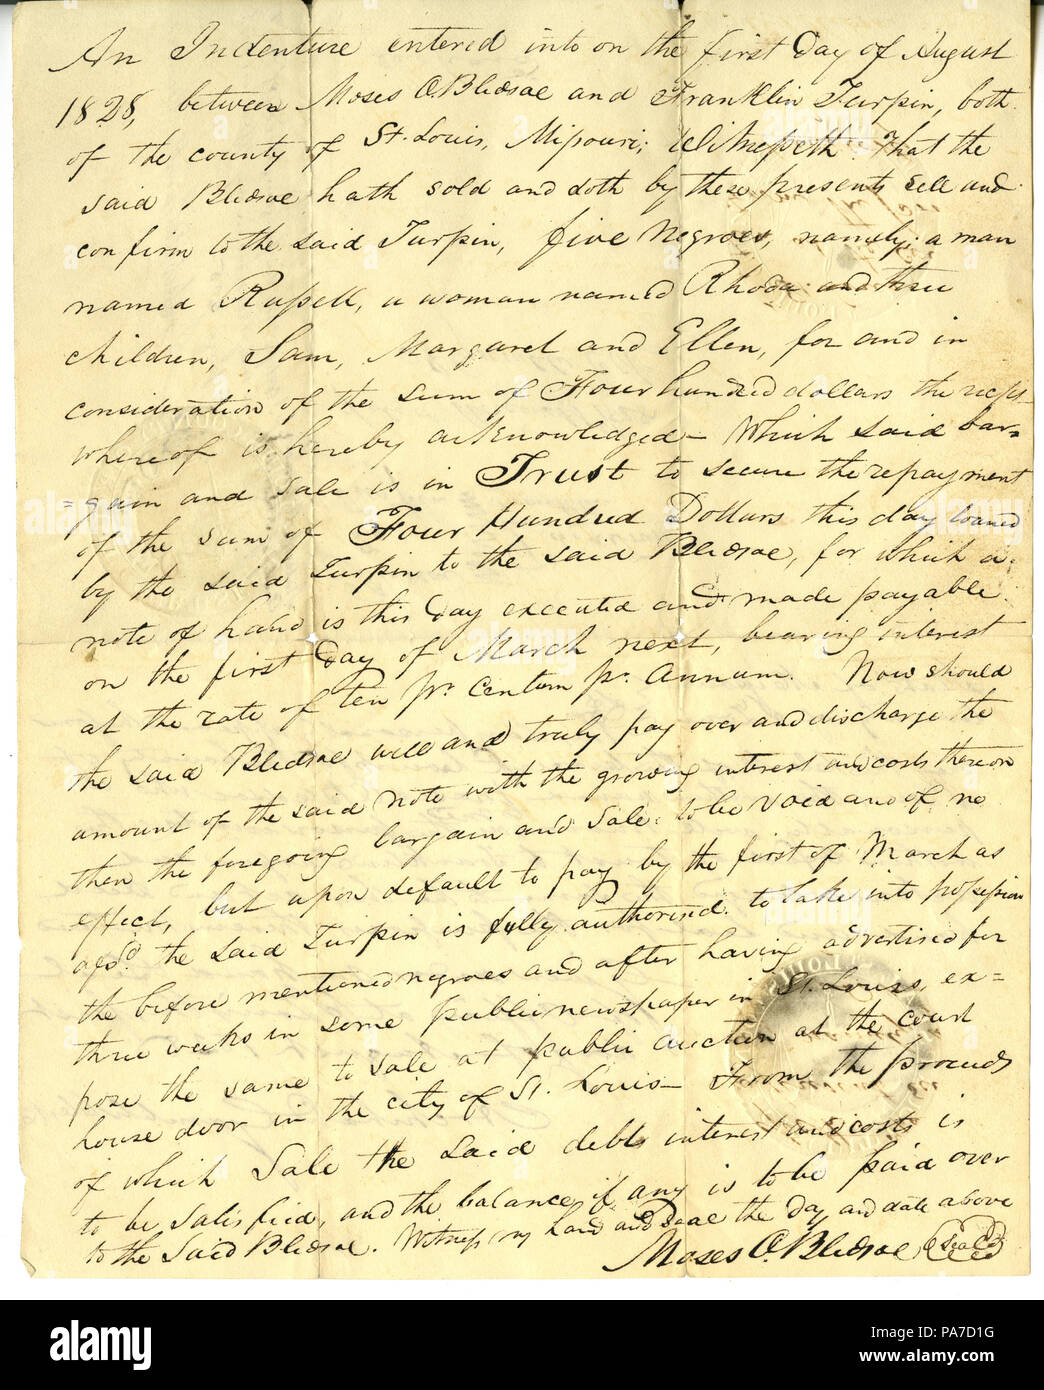 An Indenture entered into on the first Day of August
1828, between Moses O. Bledsoe and Franklin Turpin, both
of the county of St. Louis, Missouri; Witnesseth That the
said Bledsoe hath sold and doth by these presents sell and
confirm to the said Turpin, five Negroes, namely; a man
named Russell, a woman named Rhoda and three
children, Sam, Margaret and Ellen, for and in
consideration of the sum of Four hundred dollars the
whereof is hereby acknowledged – Which said bar=
=gain and sale is in Trust to secure the repayment
of the sum of Four Hundred Dollars this day loaned
by the said Turpin to the said Bledsoe, for which a
note of hand is this Day executed and made payable
on the first Day of March next, bearing interest
at the rate of ten pr. centum pr. Annum. Now should
the said Bledsoe well and truly pay over and discharge the
amount of the said note with the growing interest and costs thereon
then the foregoing bargain and sale to be void and of no
effect, but upon default to pay by the first of March as
afsd. the said Turpin is fully authorised to take into possession
the before mentioned negroes and after having advertised for
three weeks in some public newspaper in St. Louis, ex=
pose the same to sale at public auction at the court
house door in the city of St. Louis – From the proceeds
of which sale the said debt interest and costs is
to be satisfied, and the balance if any is to be paid over
to the said Bledsoe. Witness my hand and seal the day and date above
Moses O. Bledsoe Seal
alamy
Image ID: PA7D1G
www.alamy.com